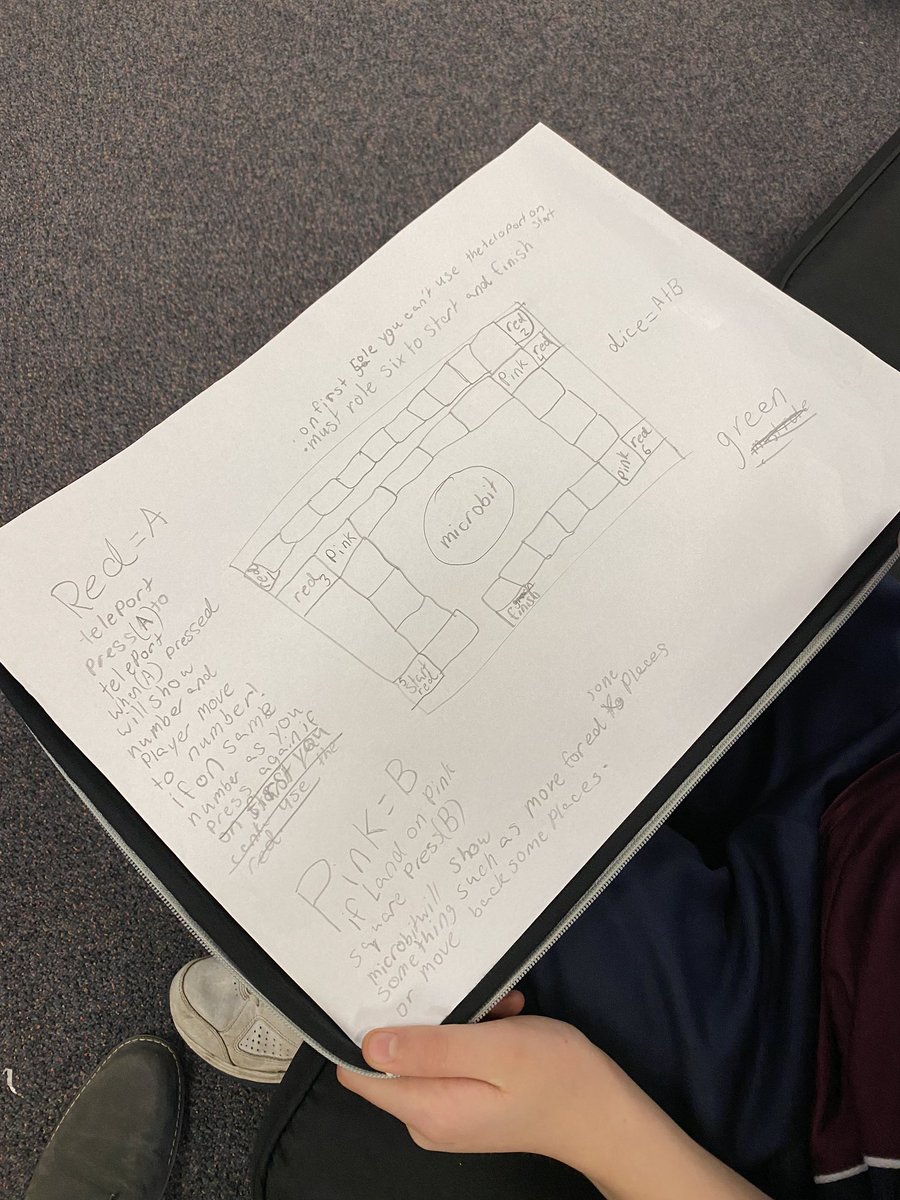 . on first role you can't use the teleport on start
. must role six to start and finish
dice=A+B
green
red
2
red
4
Pink
Pink
red
6
microbit
red
1
red
3
Pink
finish
5
Start
red
Red=A
teleport
press(A)to
teleport
when(A) pressed
will show
number and
Player move
to number!
if on same
number as you
press again if
on first you
use the
red
Pink=B
if Land on Pink
square press(B)
microbit will show
something such as move fored some Places
or move back some Places.